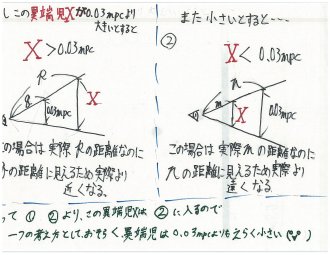 しこの異端児Xが0.03mpcより
大きいとすると
X > 0.03mpc
R
X
0.03mpc
の場合は実際Rの距離なのに
の距離に見えるため実際より
近くなる.
また小さいとすると---
②
X < 0.03mpc
n
m
X
0.03mpc
この場合は実際mの距離なのに
nの距離に見えるため実際より
遠くなる.
って ① ② より、この異端児Xは ② に入るので
一つの考え方として、おそらく異端児は0.03mpcよりもえらく小さい